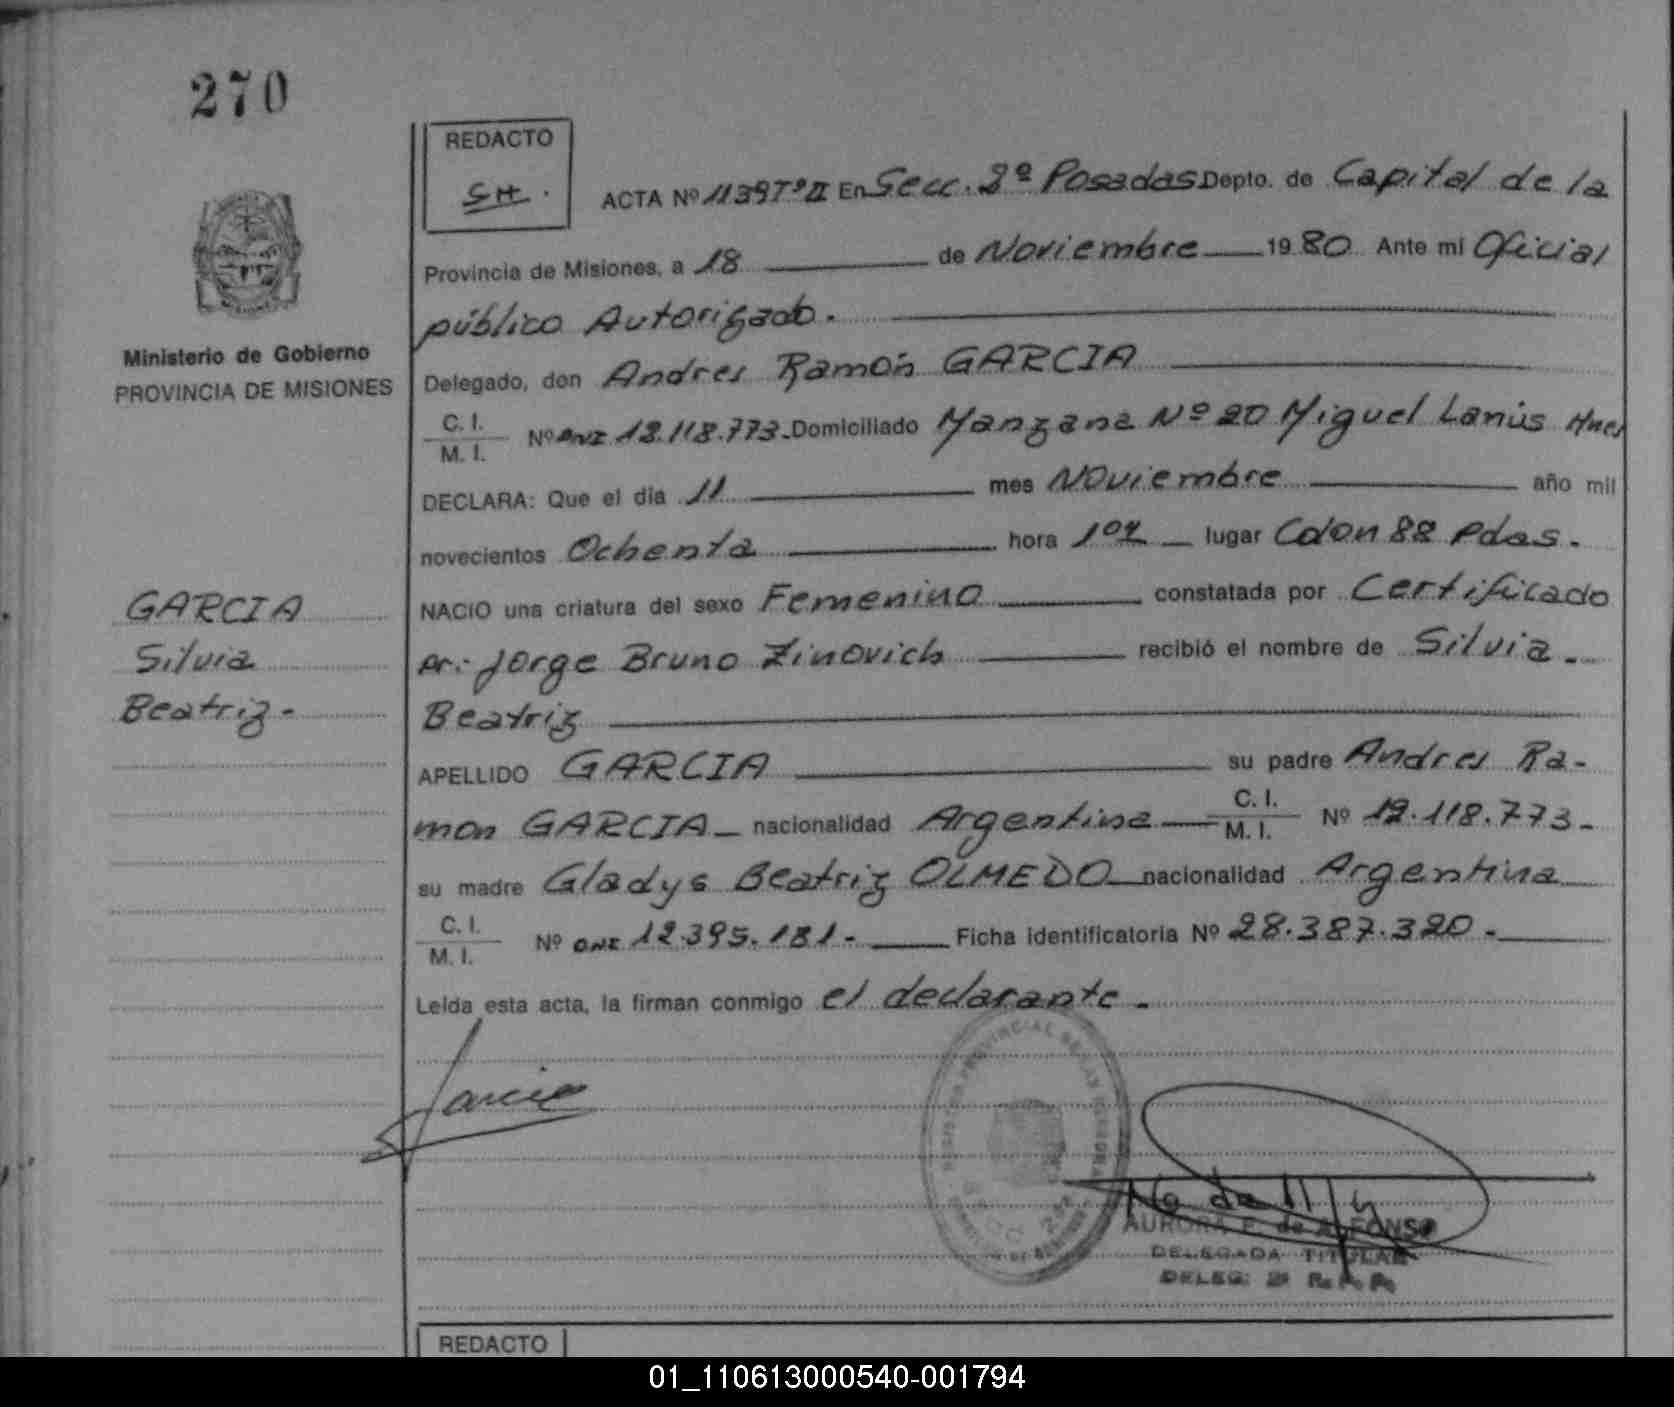 270
REDACTO
ACTA Nº 1139 Tº II En Secc. 2º Posadas Depto. de Capital de la
Provincia de Misiones, a 18 de Noviembre 1980 Ante mi Oficial
público Autorizado.
Ministerio de Gobierno
PROVINCIA DE MISIONES
Delegado, don Andres Ramón GARCIA
C. I.
M. I.
Nº DNI 12.118.773. Domiciliado Manzana Nº 20 Miguel Lanús
DECLARA: Que el día 11 mes Noviembre año mil
novecientos Ochenta hora lugar Colon 88 Pdas.
GARCIA
Silvia
Beatriz -
NACIO una criatura del sexo Femenino constatada por Certificado
Dr.: Jorge Bruno Zinovich recibió el nombre de Silvia
Beatriz
APELLIDO GARCIA su padre Andres Ra-
mon GARCIA nacionalidad Argentina C. I. M. I. Nº 12.118.773 -
su madre Gladys Beatriz OLMEDO nacionalidad Argentina
C. I.
M. I.
Nº DNI 12.395.181 - Ficha identificatoria Nº 28.387.320 -
Leída esta acta, la firman conmigo el declarante -
Garcia
AURORA F. de ALFONSO
DELEGADA TITULAR
REDACTO
01_110613000540-001794